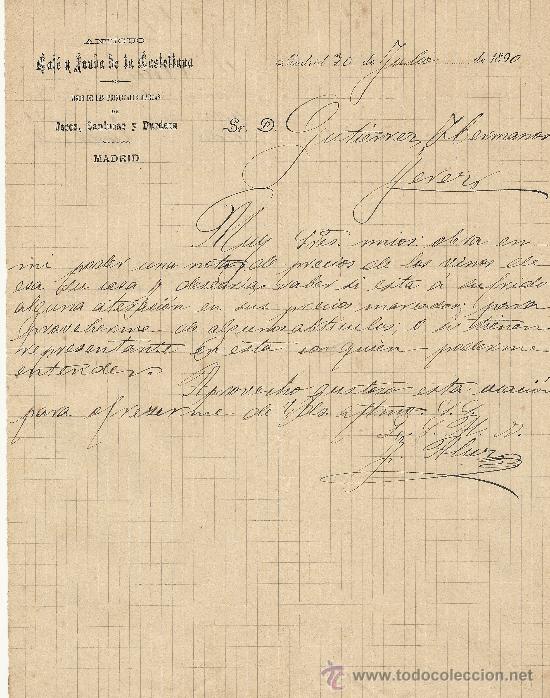 ANTIGUO
Café y Fonda de la Castellana
DE
Jerez, Sardinas y
MADRID
Madrid 30 de Julio de 1890
Sr. D. Gutierrez y Hermanos
Jerez
Muy Sres. mios: obra en
mi poder una nota de precios de los vinos de
esa su casa y desearia saber si esta a sufrido
alguna en sus precios marcados, para
proveherme de algunos articulos, o si tienen
representante en esta con quien poderme
entender.
Aprovecho gustoso esta ocasión
para ofrecerme de Vds affmo. S. S.
Q. B. S. M.
www.todocoleccion.net